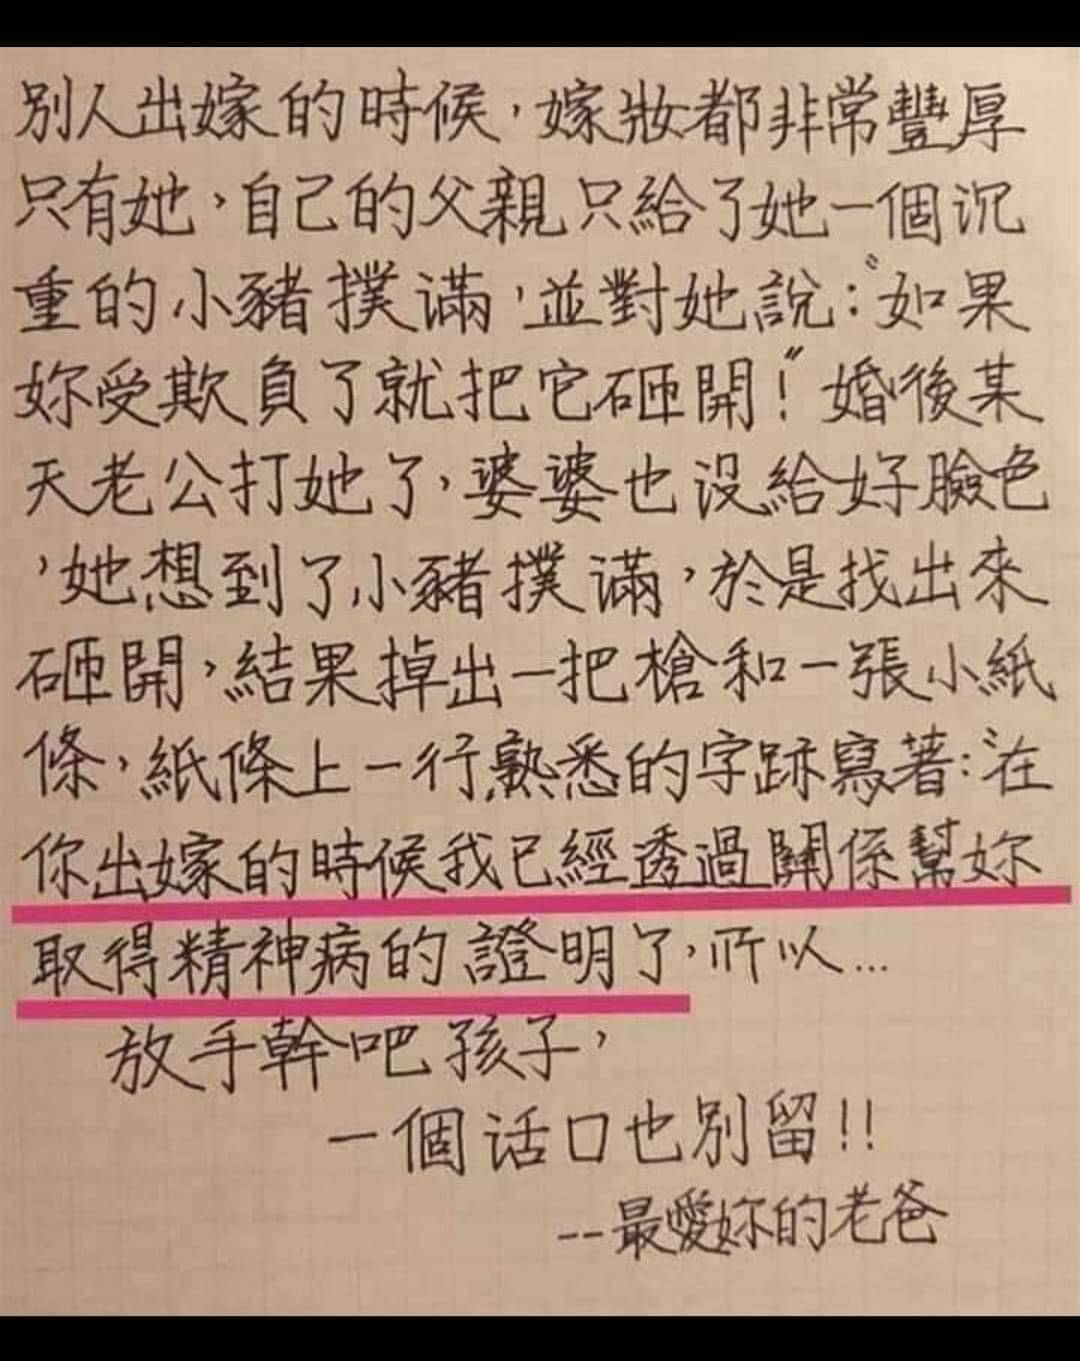 別人出嫁的時候，嫁妝都非常豐厚
只有她，自己的父親只給了她一個沉
重的小豬撲滿，並對她說："如果
妳受欺負了就把它砸開！"婚後某
天老公打她了，婆婆也没給好臉色
，她想到了小豬撲滿，於是找出來
砸開，結果掉出一把槍和一張小紙
條，紙條上一行熟悉的字跡寫著："在
你出嫁的時候我已經透過關係幫妳
取得精神病的證明了，所以...
放手幹吧孩子，
一個活口也別留!!
--最愛妳的老爸